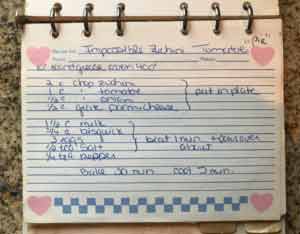 Impossible Zuchini Tomatoe "Pie"
oven 400
2 c chop zuchini
1 c tomatoe
½ c onion
⅓ c grate parm cheese
put in plate
1½ c milk
¾ c bisquick
3 eggs
½ tea salt
¼ tea pepper
beat 1 min + pour over
above
Bake 30 min cool 5 min.